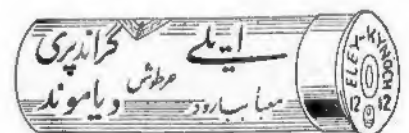 ایلے
گراندپری
خرطوش
معبأ ببارود
دیاموند
ELEY-KYNOCH
12 12